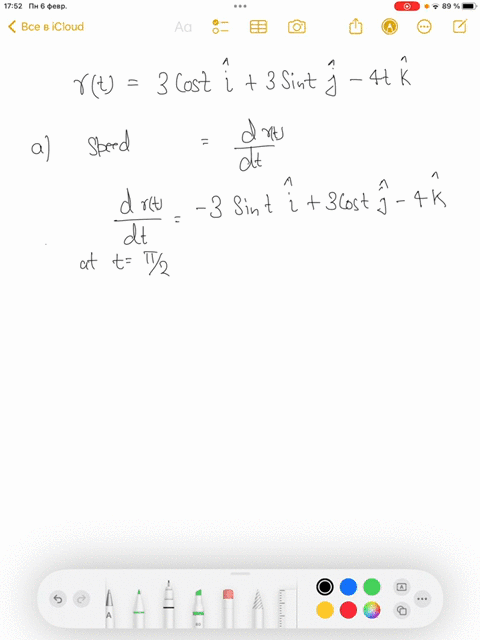 17:52 Пн 6 февр. 89 %
Все в iCloud
Aa
r(t) = 3 Cost î + 3 Sint ĵ − 4t k̂
a) Speed = d r(t)/dt
d r(t)/dt = −3 Sint î + 3 Cost ĵ − 4 k̂
at t = π/2